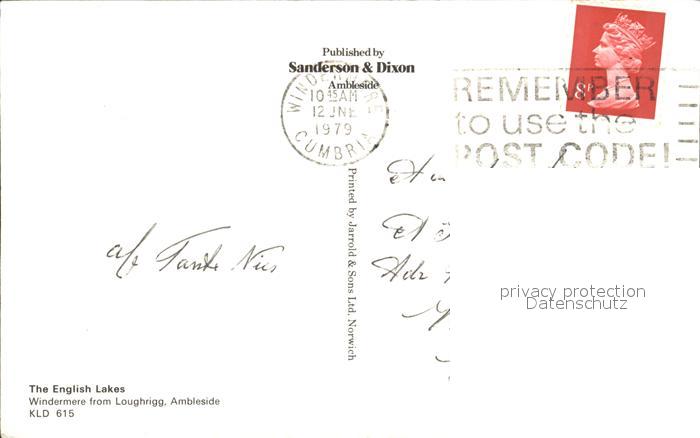 Published by
Sanderson & Dixon
Ambleside
WINDERMERE
10 45 AM
12 JNE
1979
CUMBRIA
8P
REMEMBER
to use the
POST CODE!
Printed by Jarrold & Sons Ltd. Norwich
Tante
privacy protection
Datenschutz
The English Lakes
Windermere from Loughrigg, Ambleside
KLD 615